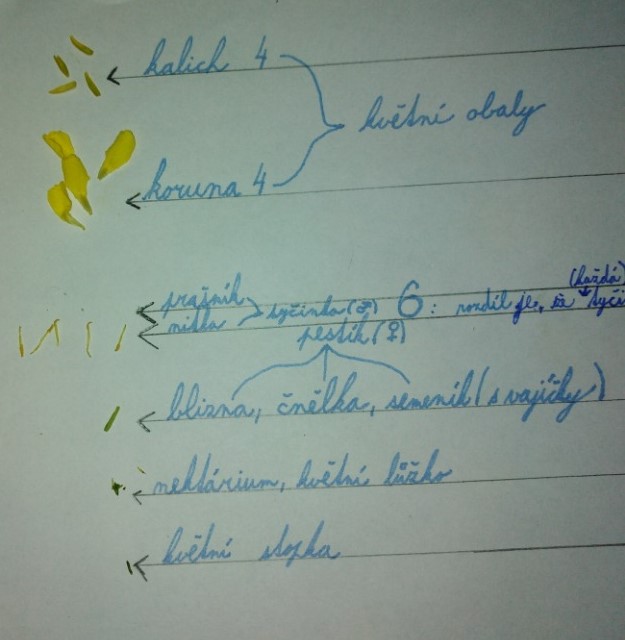 kalich 4
květní obaly
koruna 4
prašník
nitka
tyčinka (♂) 6: rozdíl je, že (každá) tyči
pestík (♀)
blizna, čnělka, semeník (s vajíčky)
nektárium, květní lůžko
květní stopka